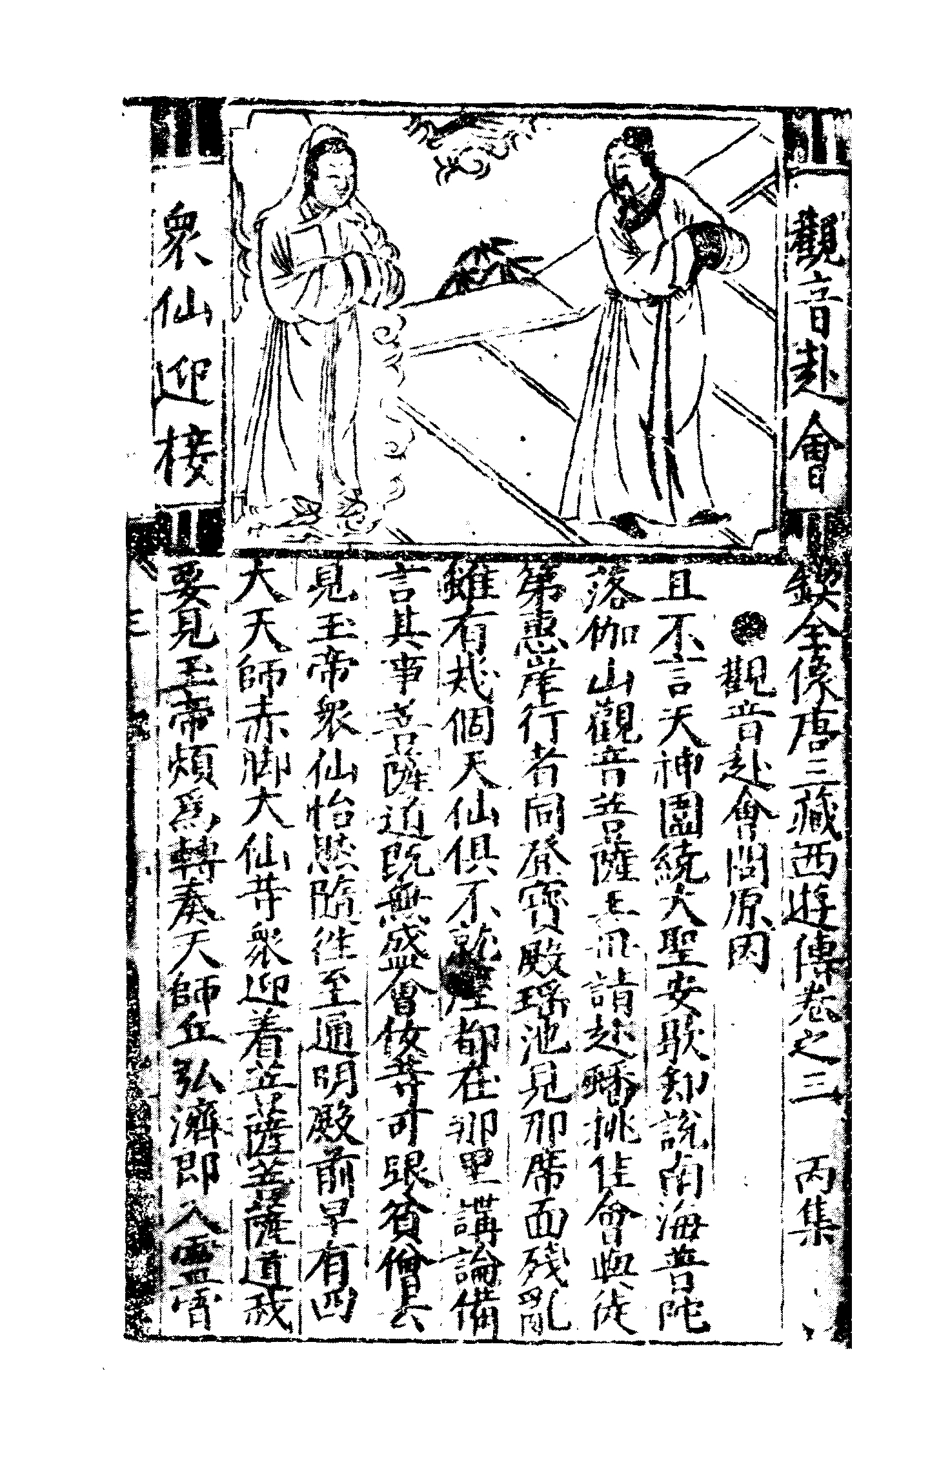 觀音赴會
衆仙迎接
鍥全像唐三藏西遊傳卷之三 丙集
觀音赴會問原因
且不言天神圍繞大聖安歇却說南海普陀
落伽山觀音菩薩王母請赴蟠桃佳會與徒
第惠岸行者同登寳殿瑶池見那席面殘亂
雖有幾個天仙俱不就座都在那里講論備
言其事菩薩道既無盛會汝等可跟貧僧去
見玉帝衆仙怡然隨往至通明殿前早有四
大天師赤脚大仙等衆迎着菩薩菩薩道我
要見玉帝煩爲轉奏天師丘弘濟即入霊霄